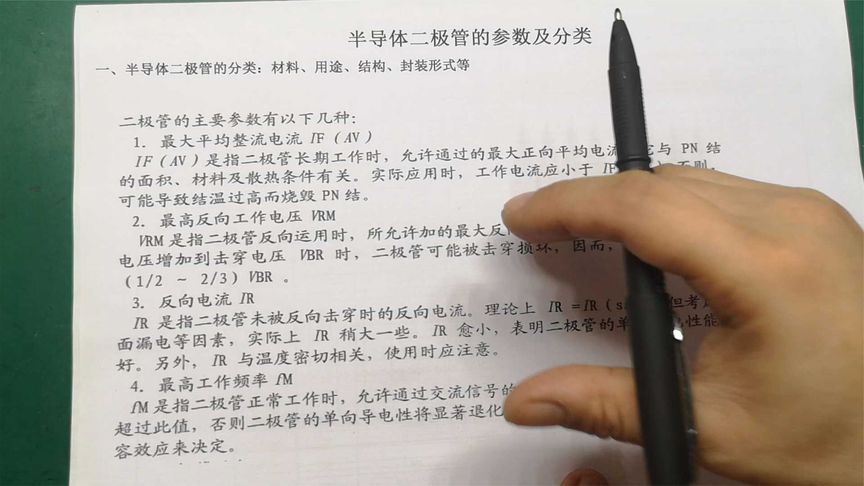 半导体二极管的参数及分类
一、半导体二极管的分类：材料、用途、结构、封装形式等
二极管的主要参数有以下几种：
1. 最大平均整流电流 IF（AV）
IF（AV）是指二极管长期工作时，允许通过的最大正向平均电流 它与 PN 结
的面积、材料及散热条件有关。实际应用时，工作电流应小于 IF 否则，
可能导致结温过高而烧毁 PN 结。
2. 最高反向工作电压 VRM
VRM 是指二极管反向运用时，所允许加的最大反
电压增加到击穿电压 VBR 时，二极管可能被击穿损坏，因而，
（1/2 ~ 2/3）VBR 。
3. 反向电流 IR
IR 是指二极管未被反向击穿时的反向电流。理论上 IR =IR（s 但考
面漏电等因素，实际上 IR 稍大一些。IR 愈小，表明二极管的单 性能
好。另外，IR 与温度密切相关，使用时应注意。
4. 最高工作频率 fM
fM 是指二极管正常工作时，允许通过交流信号的
超过此值，否则二极管的单向导电性将显著退化
容效应来决定。